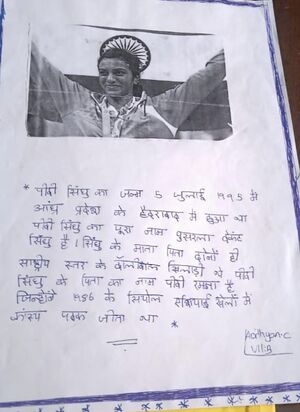 * पीवी सिंधु का जन्म 5 जुलाई 1995 में
आंध्र प्रदेश के हैदराबाद में हुआ था
पीवी सिंधु का पूरा नाम पुसरला वेंकट
सिंधु है । सिंधु के माता पिता दोनों ही
राष्ट्रीय स्तर के वॉलीबॉल खिलाड़ी थे पीवी
सिंधु के पिता का नाम पीवी रमन्ना है
जिन्होंने 1986 के सियोल एशियाई खेलों में
कांस्य पदक जीता था *
Adithyan.C
VII.B